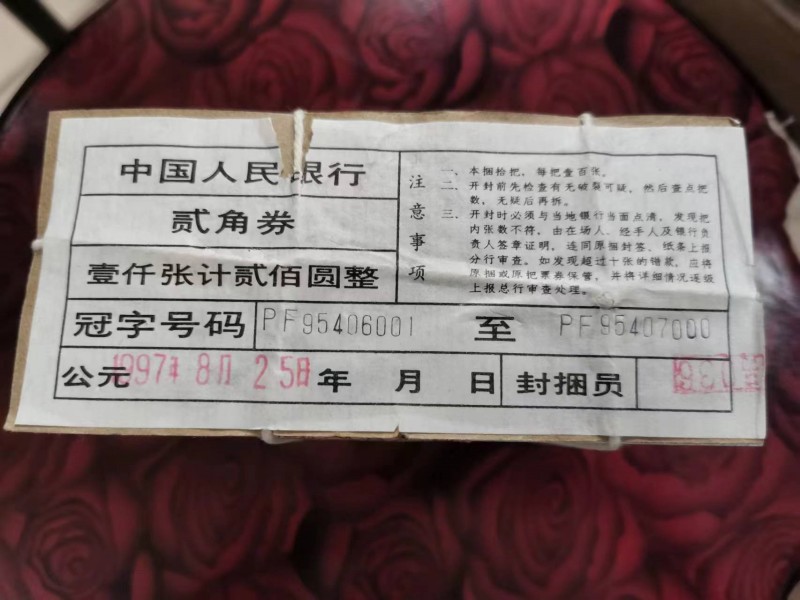 中国人民银行
贰角券
壹仟张计贰佰圆整
注意事项
一、本捆拾把，每把壹百张。
二、开封前先检查有无破裂可疑，然后查点把
数，无疑后再拆。
三、开封时必须与当地银行当面点清，发现把
内张数不符，由在场人、经手人及银行负
责人签章证明，连同原捆封签、纸条上报
分行审查。如发现超过十张的错款，应将
原捆或原把票券保管，并将详细情况逐级
上报总行审查处理。
冠字号码 PF95406001 至 PF95407000
公元 年 月 日 封捆员
1997年 8月 25日